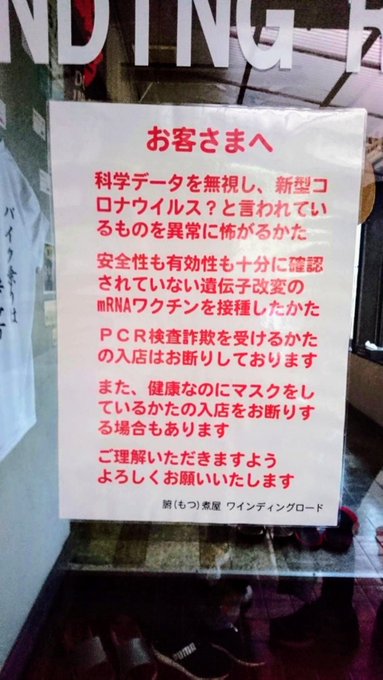 NDING R
お客さまへ
科学データを無視し、新型コ
ロナウイルス？と言われてい
るものを異常に怖がるかた
安全性も有効性も十分に確認
されていない遺伝子改変の
mRNAワクチンを接種したかた
ＰＣＲ検査詐欺を受けるかた
の入店はお断りしております
また、健康なのにマスクをし
ているかたの入店をお断りす
る場合もあります
ご理解いただきますよう
よろしくお願いいたします
腑(もつ)煮屋 ワインディングロード
バイク乗りは
PUMA